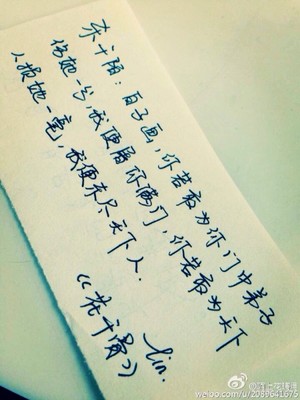 杀千陌：白子画，你若敢为你门中弟子
伤她一分，我便屠你满门，你若敢为天下
人损她一毫，我便杀尽天下人.
《花千骨》
lin.
weibo.com/u/2089641675